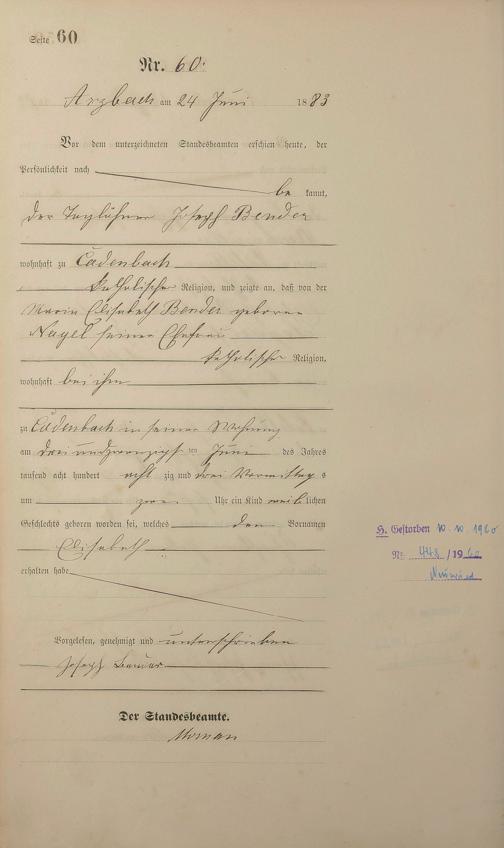 Seite 60
Nr. 60.
Arzbach am 24 Juni 1883
Vor dem unterzeichneten Standesbeamten erschien heute, der
Persönlichkeit nach
be kannt,
der Taglöhner Joseph Bender
wohnhaft zu Cadenbach
katholischer Religion, und zeigte an, daß von der
Maria Elisabeth Bender geborene
Nagel seiner Ehefrau
katholischer Religion,
wohnhaft bei ihm
zu Cadenbach in seiner Wohnung
am drei und zwanzigsten Juni des Jahres
tausend acht hundert acht zig und drei Vormittags
um zwei Uhr ein Kind weiblichen
Geschlechts geboren worden sei, welches den Vornamen
Elisabeth
erhalten habe
Vorgelesen, genehmigt und unterschrieben
Joseph Bender
Der Standesbeamte.
H. Gestorben 10.10.1960
Nr. 448/1960
Neuwied